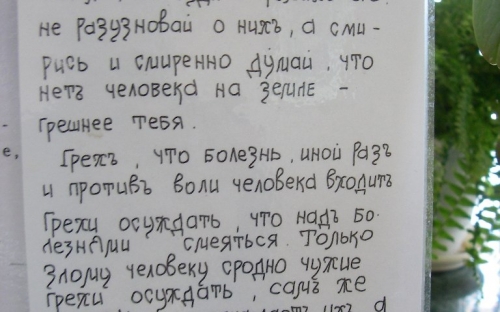 не разузновай о нихъ, а сми-
рись и смиренно думай, что
нетъ человека на земле -
грешнее тебя.
Грехъ, что болезнь, иной разъ
и противъ воли человека входитъ
Грехи осуждать, что надъ бо-
лезнами смеяться. Только
злому человеку сродно чужие
грехи осуждать, самъ же
ихъ, а